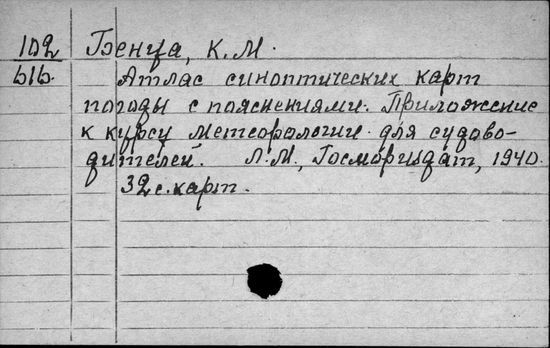 102 Бенца, К. М.
616. Атлас синоптических карт
погоды с пояснениями. Приложение
к курсу метеорологии для судово-
дителей. Л.М., Госмориздат, 1940.
32 с. карт.